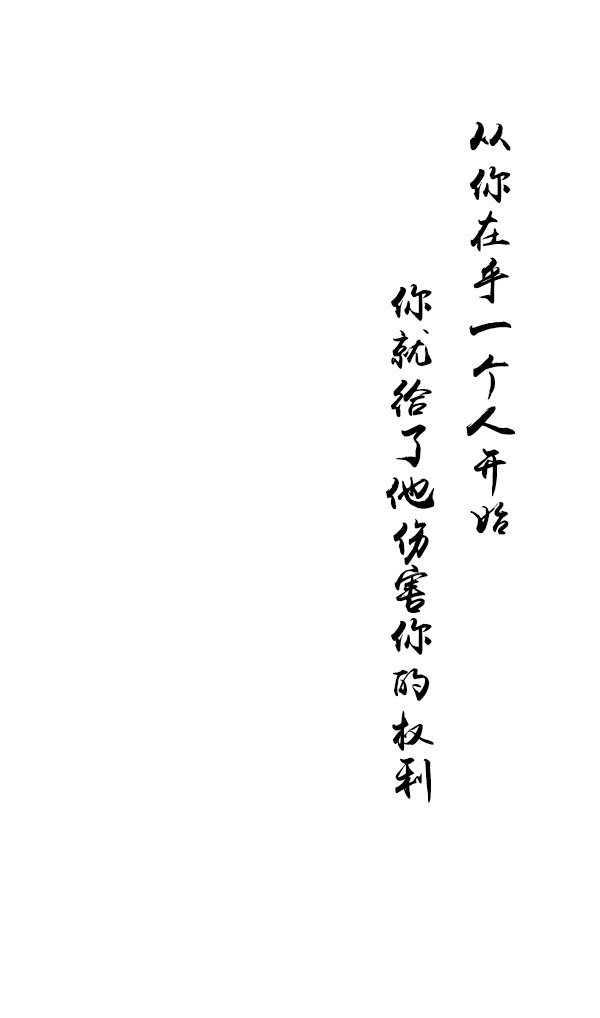 从你在乎一个人开始
你就给了他伤害你的权利